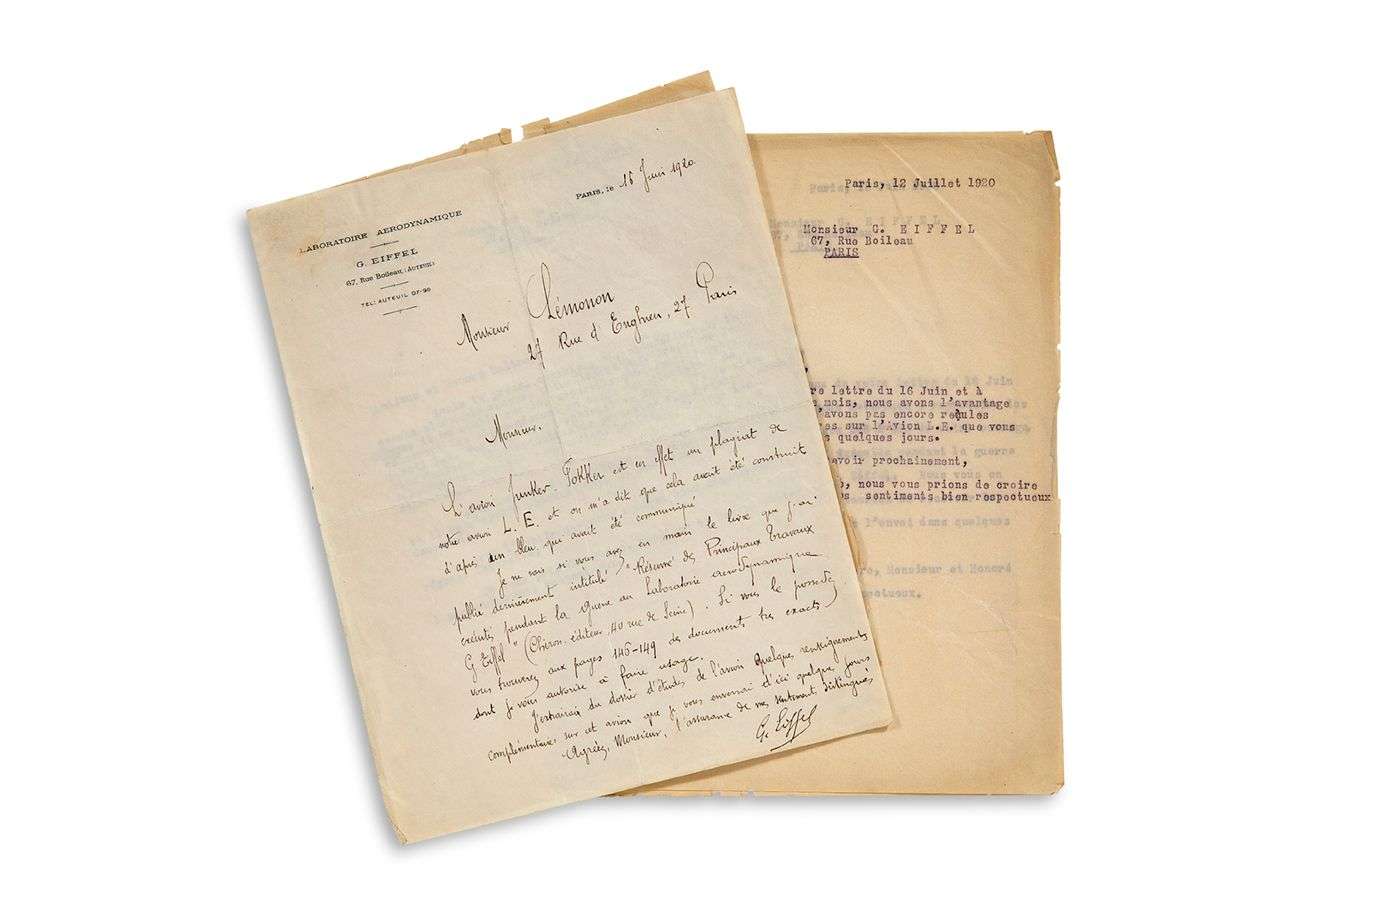 LABORATOIRE AERODYNAMIQUE
G. EIFFEL
67, Rue Boileau, (AUTEUIL)
TEL: AUTEUIL 07-96
PARIS, le 16 Juin 1920
Monsieur Lémonon
27 Rue d'Enghien, 27 Paris
Monsieur.
L'avion Junker-Fokker est en effet un plagiat de
notre avion L. E. et on m'a dit que cela avait été construit
d'après un bleu qui avait été communiqué
Je ne sais si vous avez en main le livre que j'ai
publié dernièrement intitulé "Résumé des Principaux Travaux
exécutés pendant la Guerre au Laboratoire aérodynamique
G Eiffel" (Chiron éditeur, 40 rue de Seine). Si vous le possédez
vous trouverez aux pages 146-149 des documents très exacts
dont je vous autorise à faire usage.
J'extrairai du dossier d'études de l'avion quelques renseignements
complémentaires sur cet avion que je vous enverrai d'ici quelques jours
Agréez, Monsieur, l'assurance de mes sentiments distingués
G. Eiffel
Paris, 12 Juillet 1920
Monsieur G. EIFFEL
67, Rue Boileau
PARIS
re lettre du 16 Juin et à
mois, nous avons l'avantage
avons pas encore reçules
res sur l'Avion L.E. que vous
s quelques jours.
evoir prochainement,
, nous vous prions de croire
os sentiments bien respectueux